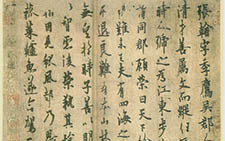 張翰字季鷹吳郡人
清才善屬文而縱任
人號之為江東步
謂同郡顧榮曰天下
難未已夫有四海
求退良難吾本山林
無望於時子善以明
以智慮後榮執其
因見秋風起乃思
菰菜鱸魚遂命駕